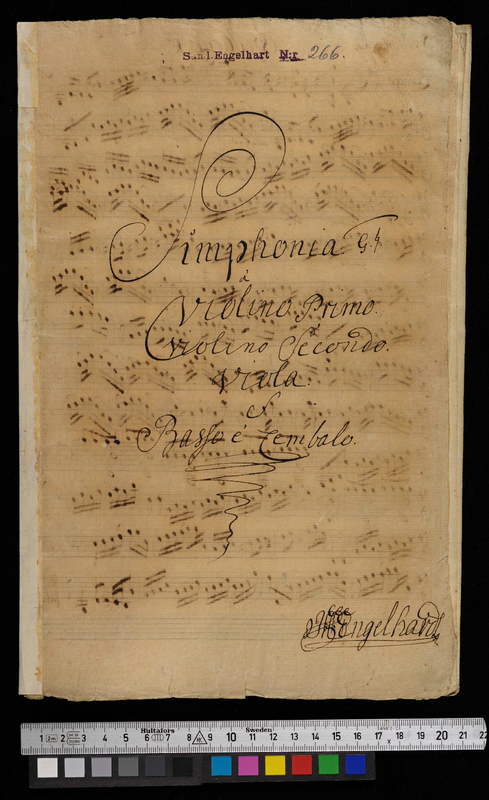 Saml. Engelhart N:r 266.
Simphonia G♮
à
Violino Primo.
Violino Secondo.
Viola.
è
Basso è Cembalo.
Engelhardt
Hultafors
Sweden
1 2m 2 3 4 5 6 7 8 9 10 11 12 13 14 15 16 17 18 19 20 21 22